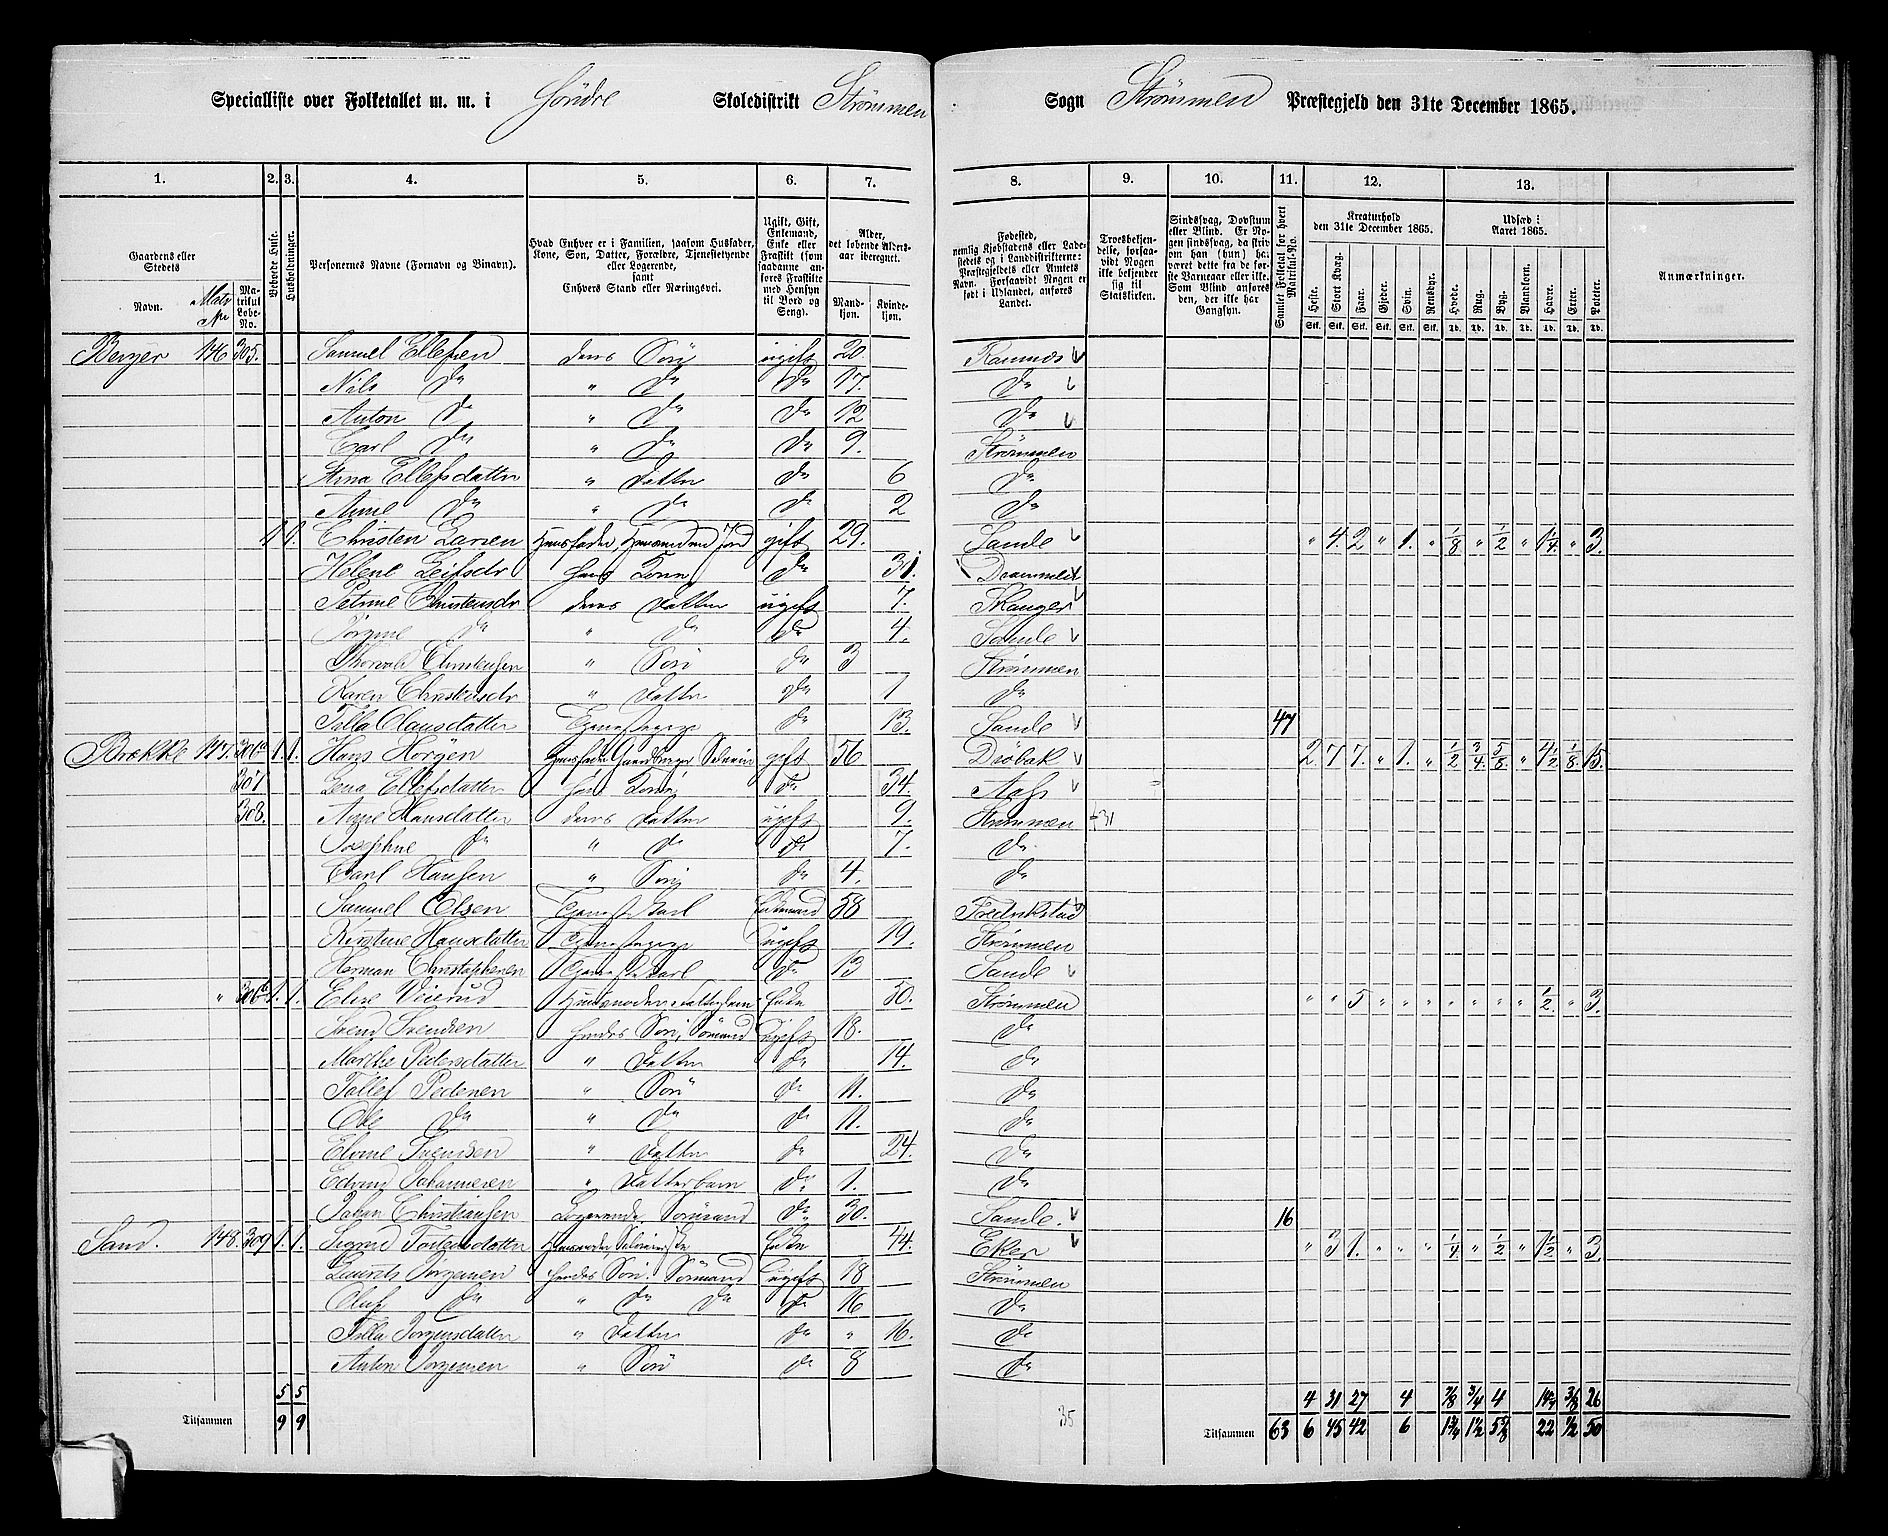 Specialliste over Folketallet m. m. i Søndre Skoledistrikt Strømmen Sogn Strømmen Præstegjeld den 31te December 1865.
1. 2. 3. 4. 5. 6. 7. 8. 9. 10. 11. 12. 13.
Gaardens eller Stedets Navn. Matr No Matrikul Løbe-No.
Beboede Huse.
Husholdninger.
Personernes Navne (Fornavn og Binavn).
Hvad Enhver er i Familien, saasom Husfader, Kone, Søn, Datter, Forældre, Tjenestetyende eller Logerende, samt Enhvers Stand eller Næringsvei.
Ugift, Gift, Enkemand, Enke eller Fraskilt (som saadanne anføres Fraskilte med Hensyn til Bord og Seng).
Alder, det løbende Aldersaar iberegnet.
Mandkjøn. Kvindekjøn.
Fødested, nemlig Kjøbstadens eller Ladestedets og i Landdistrikterne: Præstegjeldets eller Amtets Navn. Forsaavidt Nogen er født i Udlandet, anføres Landet.
Troesbekjendelse, forsaavidt Nogen ikke bekjender sig til Statskirken.
Sindssvag, Døvstum eller Blind. Er Nogen sindssvag, da skrives om han (hun) har været det fra de første Barneaar eller ikke. Som Blind anføres den, der ikke har Gangsyn.
Samlet Folketal for hvert Matrikul-No.
Kreaturhold den 31te December 1865.
Heste. Stort Kvæg. Faar. Gjeder. Svin. Rensdyr.
Udsæd i Aaret 1865.
Hvede. Rug. Byg. Blandkorn. Havre. Erter. Poteter.
Anmærkninger.
Berger 146 305. Samuel Ellefsen deres Søn ugift 20. Ramnæs
Nils do " do do 17. do
Anton do " do do 12 do
Carl do " do do 9. Strømmen
Stina Ellefsdatter " Datter do 6 do
Anne do " do do 2 do
1 1. Christen Larsen Huusfader, Huusmand m/Jord gift 29. Sande " 4. 2 " 1. " 1/8 " 1/2 " 1 1/4 " 3.
Helene Leifsdr hans Kone do 31. Drammen
Petrine Christensdr deres Datter ugift 7. Skauger
Jørgine do " do do 4. Sande
Thorvald Christensen " Søn do 3 Strømmen
Karen Christensdr " Datter do 1 do
Tilla Olausdatter Tjenestepige do 13. Sande 47
Brække 147. 306a 1. 1. Hans Horgen Huusfader Gaardbruger Selveier gift 56 Drøbak 2 7 7. " 1. " 1/2 3/4 5/8 " 4 1/2 1/8. 15.
307 Lena Ellefsdatter hans Kone do 34. Aas
308. Anne Hansdatter deres Datter ugift 9. Strømmen
Josephine do " do do 7. do
Carl Hansen " Søn do 4. do
Samuel Olsen Tjenestekarl Enkemand 58 Fredrikstad
Kirstine Hansdatter Tjenestepige ugift 19. Strømmen
Herman Christophersen Tjenestekarl do 13 Sande
" 306b 1. 1. Elise Vierud Enke 50. Strømmen " " 5 " " " " " " " 1/2 " 3.
Svend Svendsen hendes Søn, Sømand ugift 18. do
Marthe Pedersdatter " Datter do 14. do
Tollef Pedersen " Søn do 11. do
Ole do " do do 11. do
Elvine Svendsen " Datter do 24. do
Edvard Johannesen " Datterbarn do 1. do
Johan Christiansen Logerende, Sømand do 30. Sande. 16
Sand. 148. 309 1. 1. Enke 44. Eker " 3 1. " " " 1/4 " 1/2 " 1 1/2 " 3
Laurits Jørgensen hendes Søn. Sømand ugift 18 Strømmen
Oluf do " do do do 16 do
Tilla Jørgensdatter " Datter do " 16. do
Anton Jørgensen " Søn do 8 do
5 5 4 31 27 4 7/8 3/4 4 14 1/4 3/8 26
Tilsammen 9 9 35 Tilsammen 63 6 45 42 6 1 3/4 1 1/2 5 5/8 22 1/2 50